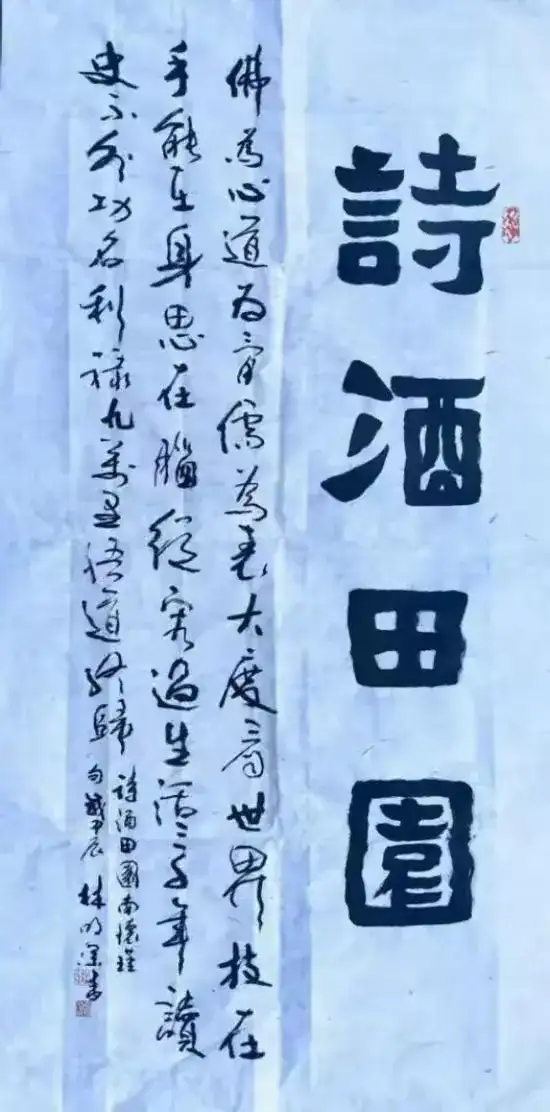 詩酒田園
佛為心道為骨儒為表大度看世界技在
手能在身思在腦從容過生活三千年讀
史不外功名利祿九萬里悟道終歸
詩酒田園南懷瑾
句歲甲辰林